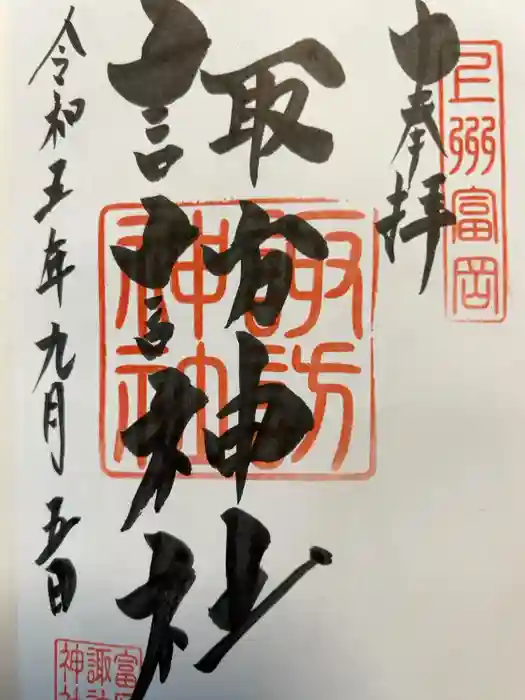 奉拝
上州富岡
諏訪神社
諏訪神社
令和五年九月五日
富岡
諏訪
神社